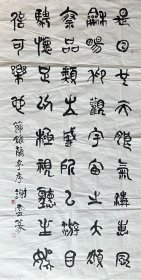 是日也天朗氣清惠風
龢暢仰觀宇宙之大頫
察品類之盛所以遊目
騁懷足以極視聽之娛
信可樂也
節錄蘭亭序